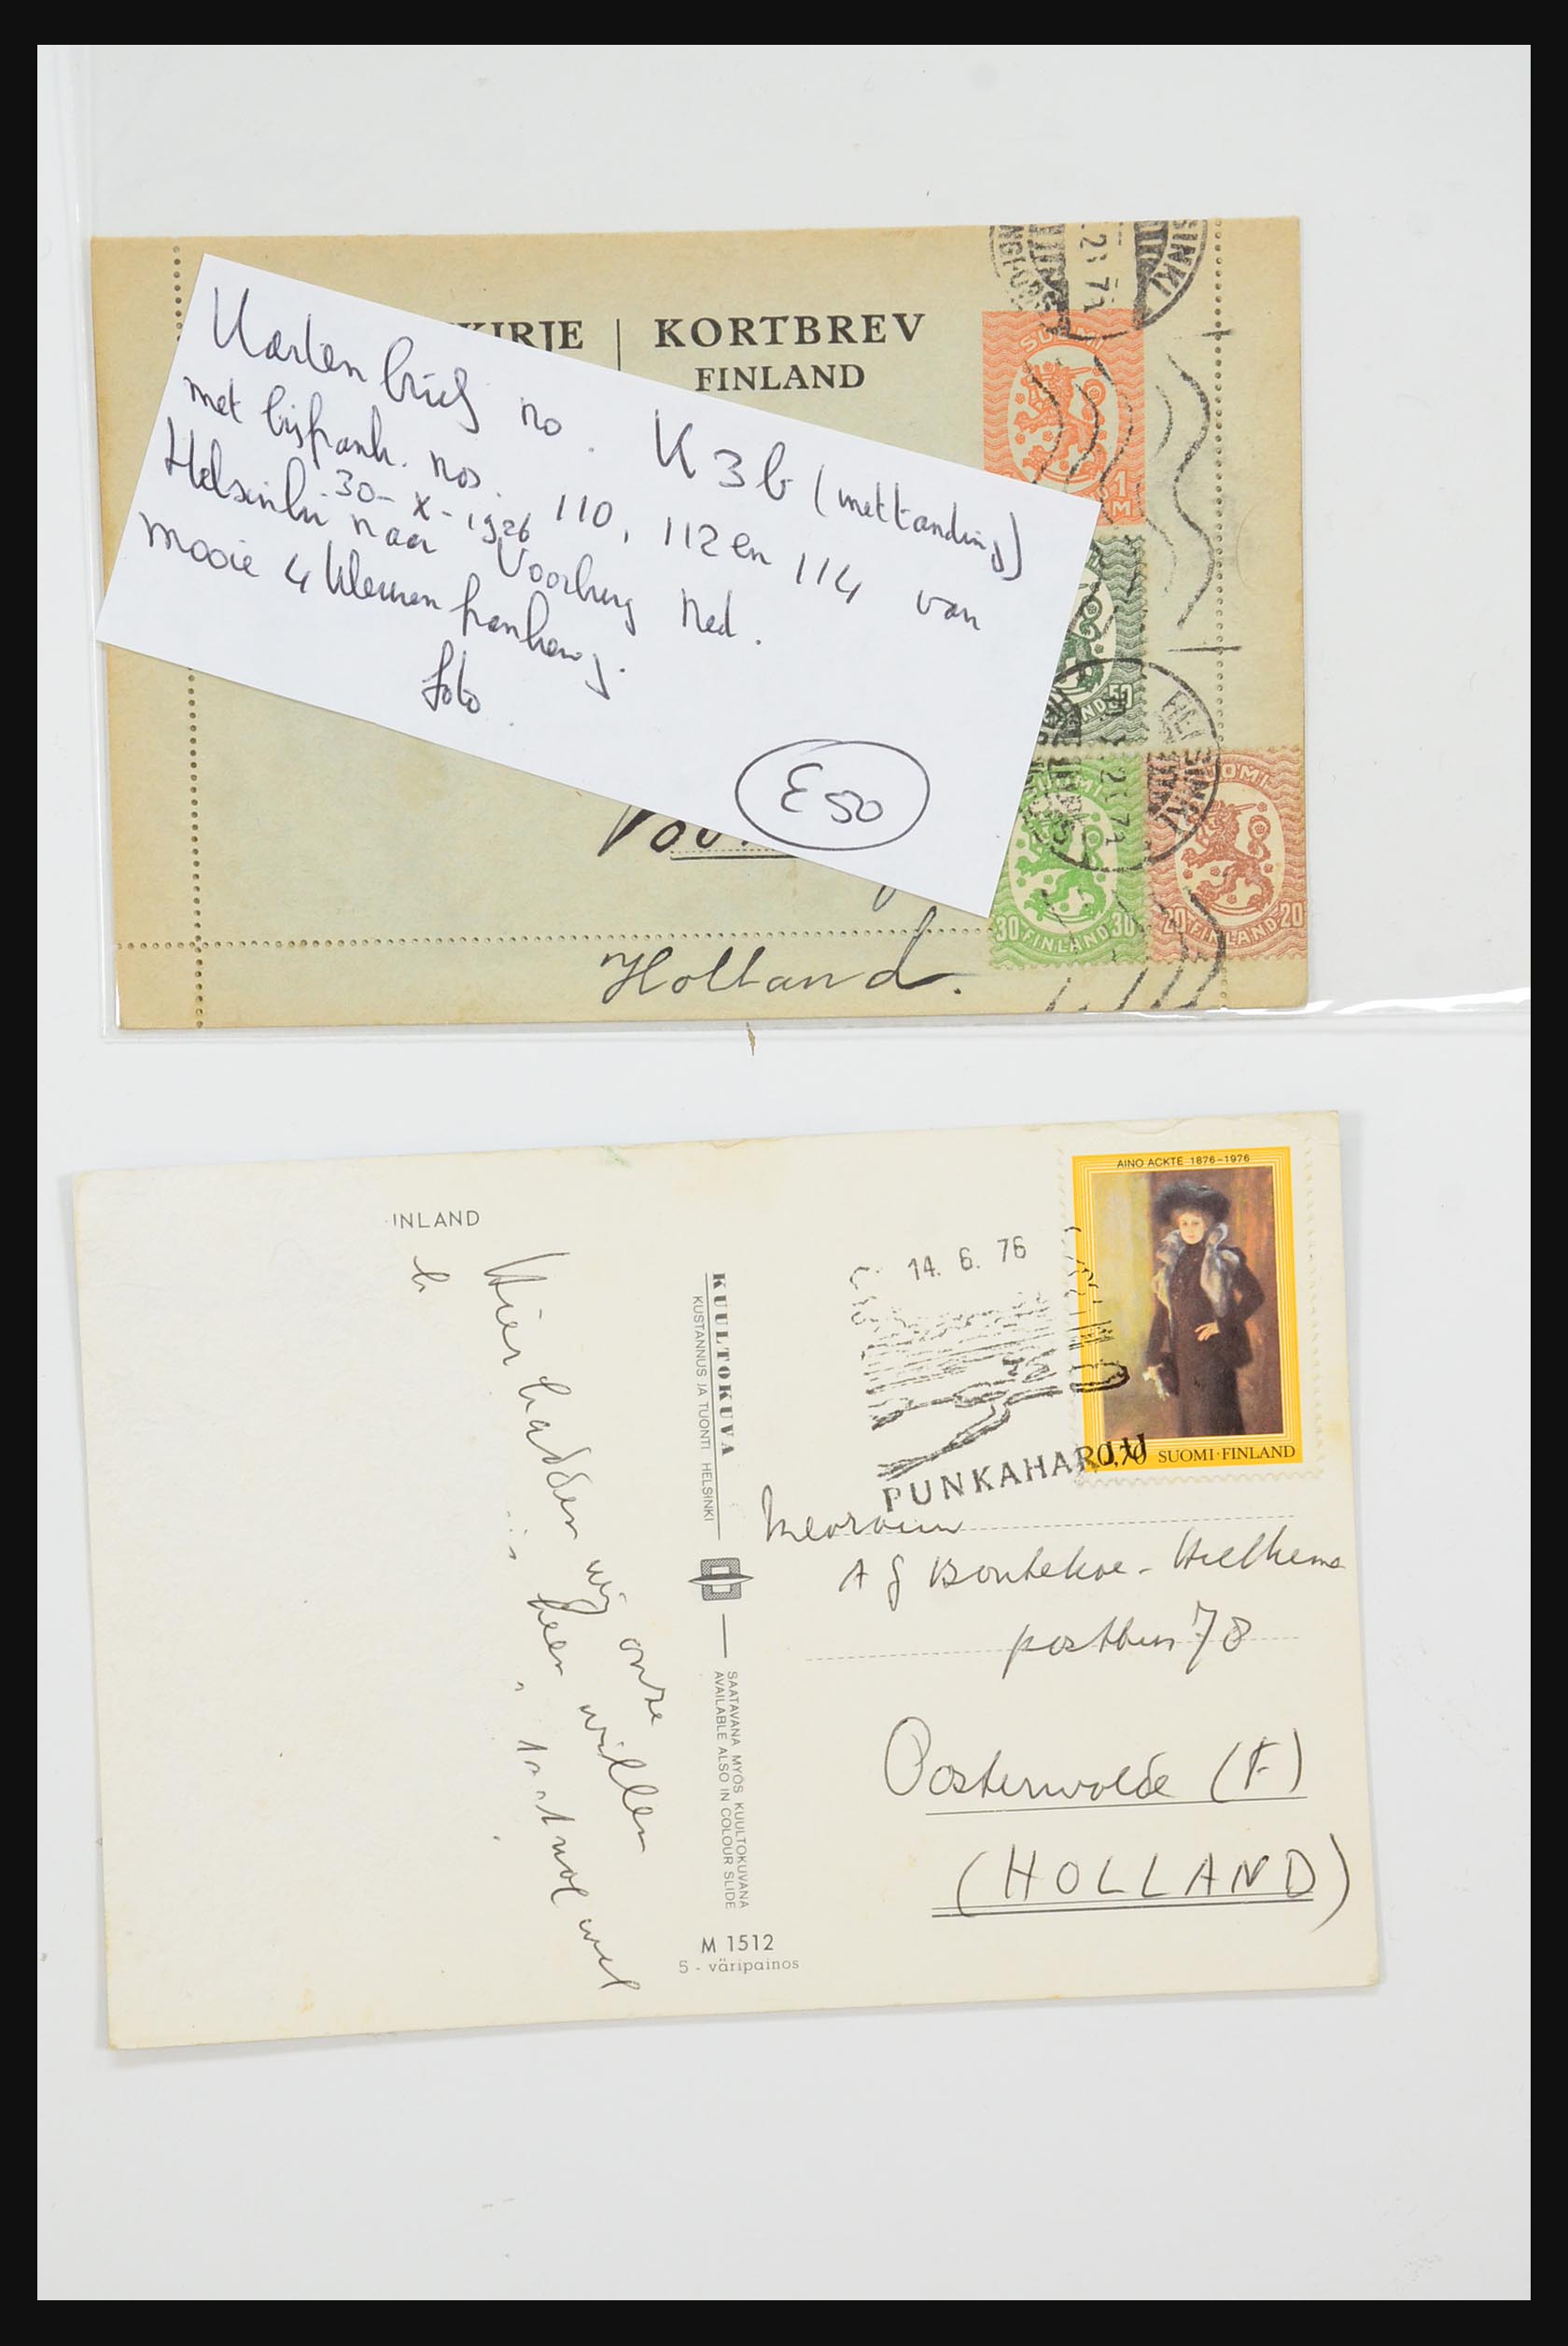 KIRJE | KORTBREV
FINLAND
Kartenbrief no. K3b (met tanding)
met bijfrank. nos. 110, 112 en 114 van
30-X-1926
Helsinki naar Voorburg Ned.
mooie 4 kleuren frankering.
foto.
£50
SUOMI
1
M
50
SUOMI
30 FINLAND 30
SUOMI
20 FINLAND 20
HELSINKI
Holland.
AINO ACKTÉ 1876-1976
0,70 SUOMI·FINLAND
14. 6. 76
PUNKAHARJU
INLAND
Hier hadden wij onze
heen willen
wel
KUULTOKUVA
KUSTANNUS JA TUONTI HELSINKI
SAATAVANA MYÖS KUULTOKUVANA
AVAILABLE ALSO IN COLOUR SLIDE
M 1512
5 - väripainos
Mevrouw
A G Bontekoe - Hielkema
postbus 78
Oosterwolde (F)
(HOLLAND)